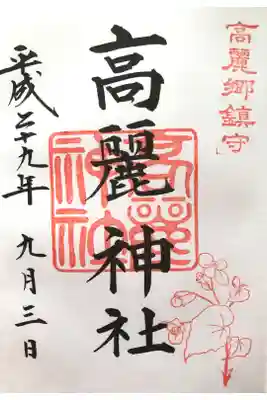 高麗郷鎮守
高麗神社
高麗神社
平成二十九年 九月三日